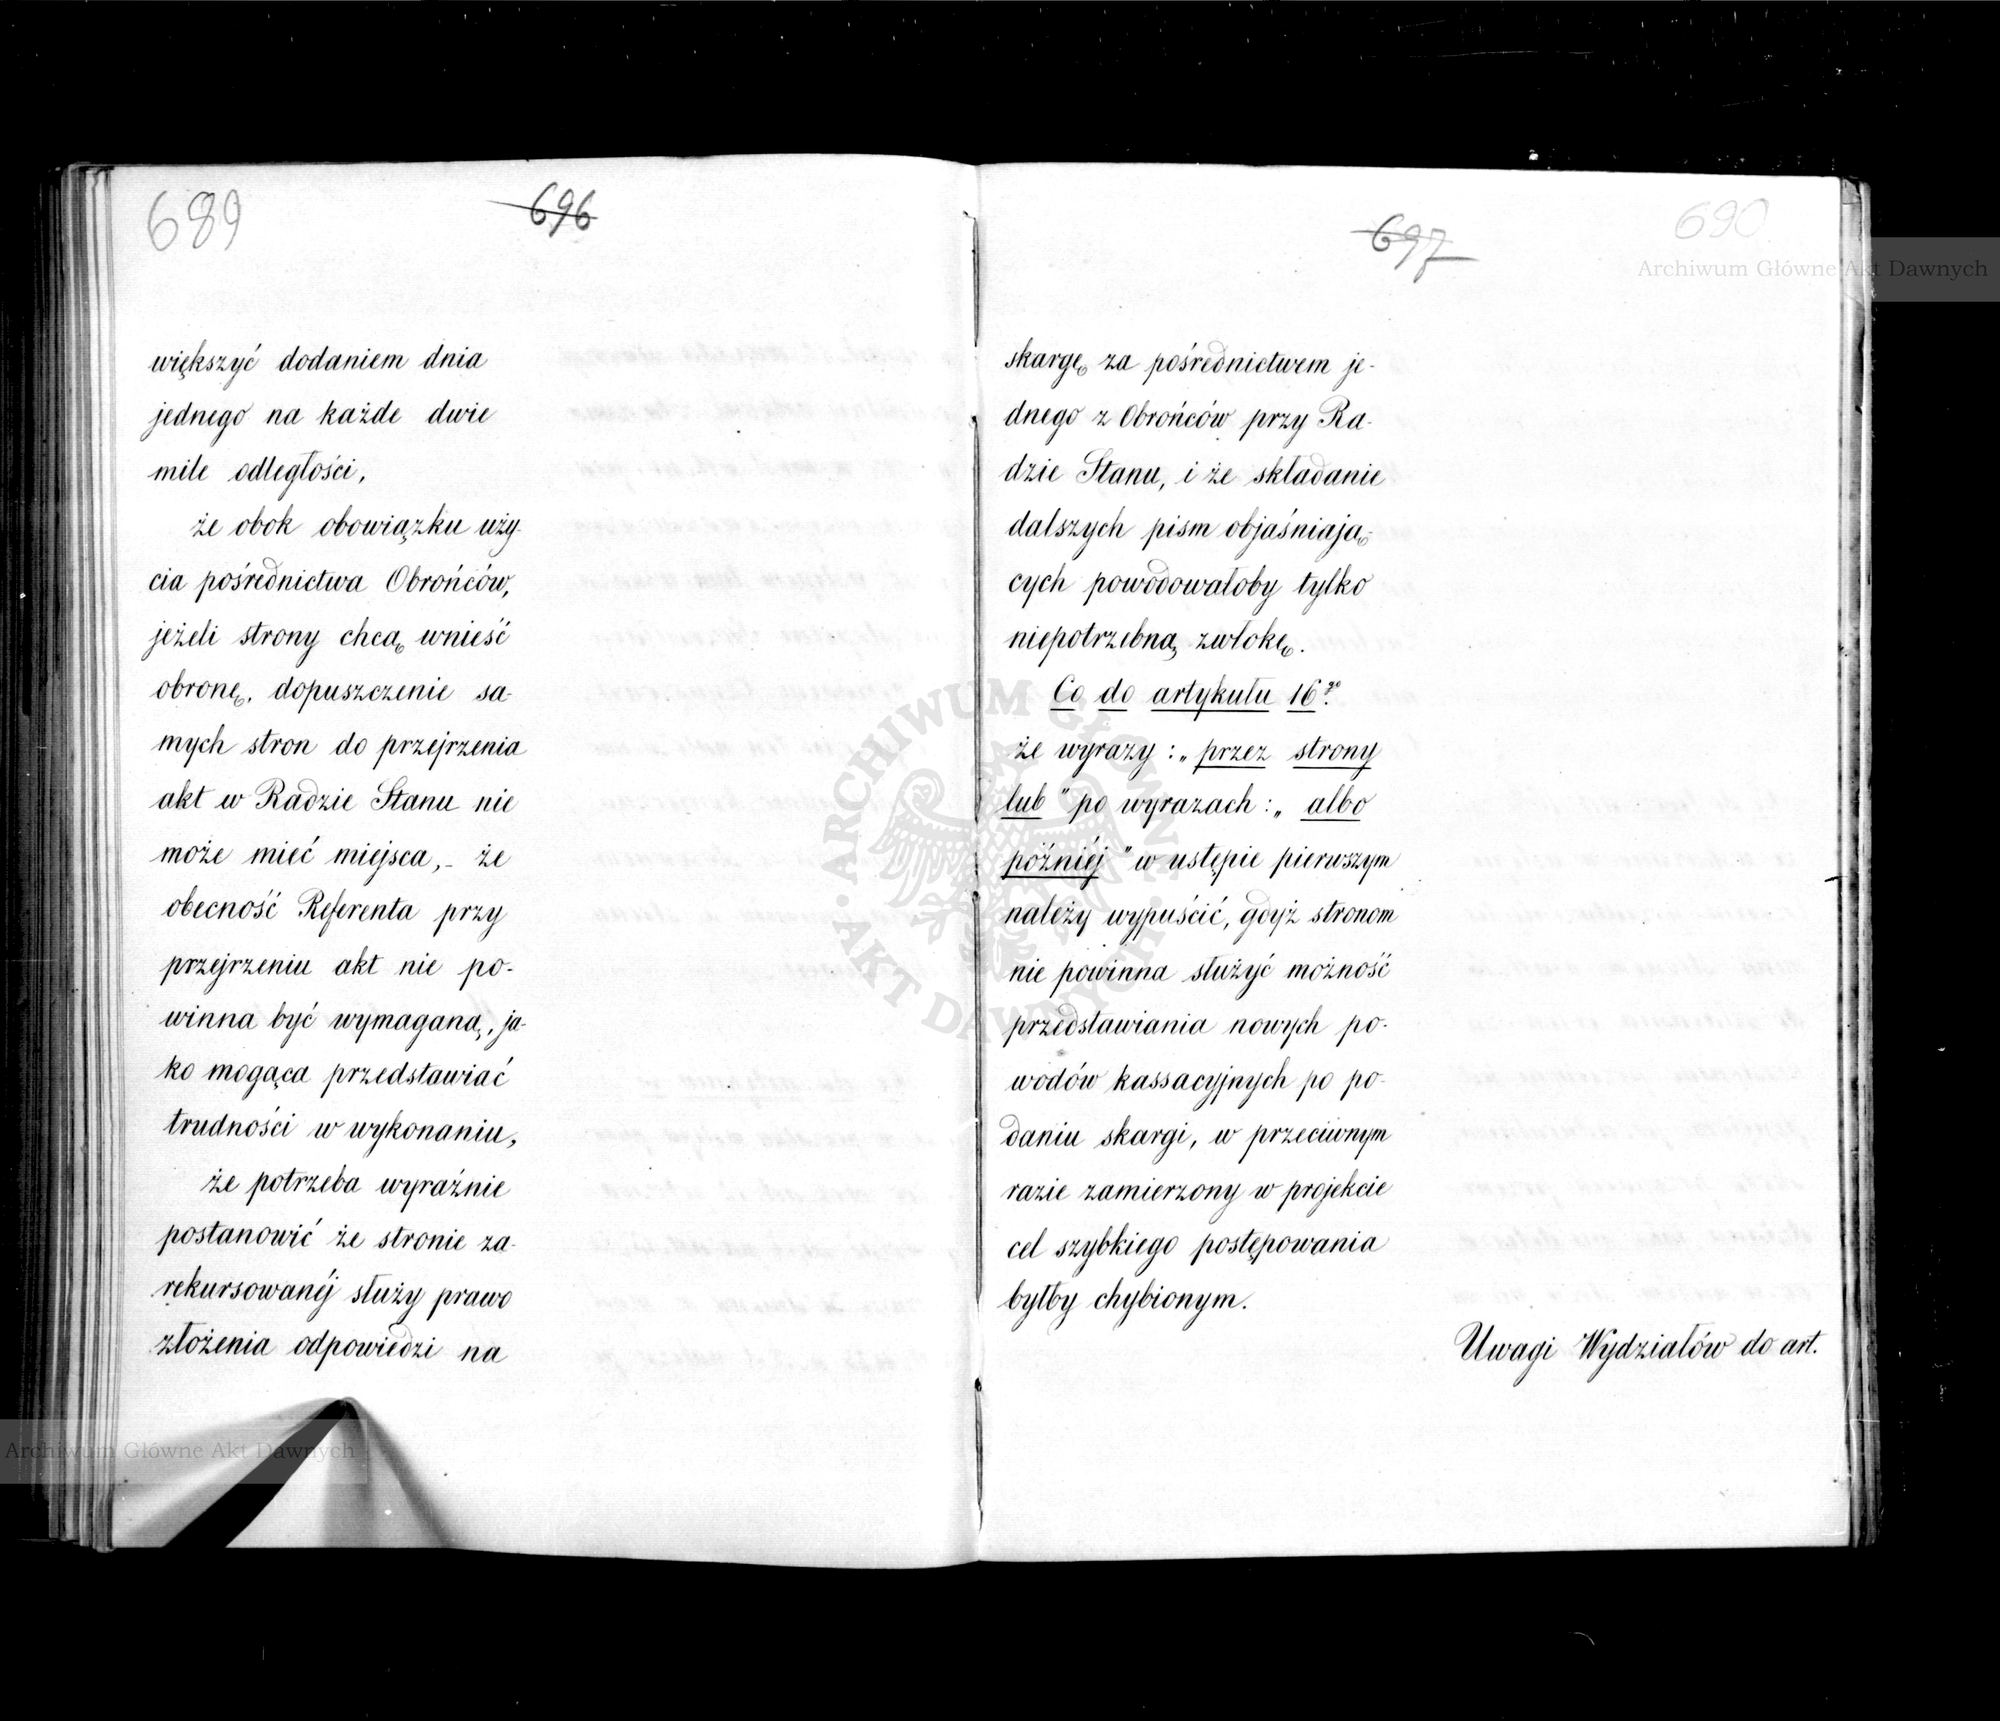 689
696
większyć dodaniem dnia
jednego na każde dwie
mile odległości,
że obok obowiązku uży-
cia pośrednictwa Obrońców,
jeżeli strony chcą wnieść
obronę, dopuszczenie sa-
mych stron do przejrzenia
akt w Radzie Stanu nie
może mieć miejsca, - że
obecność Referenta przy
przejrzeniu akt nie po-
winna być wymaganą, ja-
ko mogąca przedstawiać
trudności w wykonaniu,
że potrzeba wyraźnie
postanowić że stronie za-
rekursowanéj służy prawo
złożenia odpowiedzi na
697
690
skargę za pośrednictwem je-
dnego z Obrońców przy Ra-
dzie Stanu, i że składanie
dalszych pism objaśniają-
cych powodowałoby tylko
niepotrzebną zwłokę.
Co do artykułu 16go.
że wyrazy: „przez strony
lub" po wyrazach: „albo
późniéj" w ustępie pierwszym
należy wypuścić, gdyż stronom
nie powinna służyć możność
przedstawiania nowych po-
wodów kassacyjnych po po-
daniu skargi, w przeciwnym
razie zamierzony w projekcie
cel szybkiego postępowania
byłby chybionym.
Uwagi Wydziałów do art.
Archiwum Główne Akt Dawnych
Archiwum Główne Akt Dawnych
ARCHIWUM GŁÓWNE AKT DAWNYCH